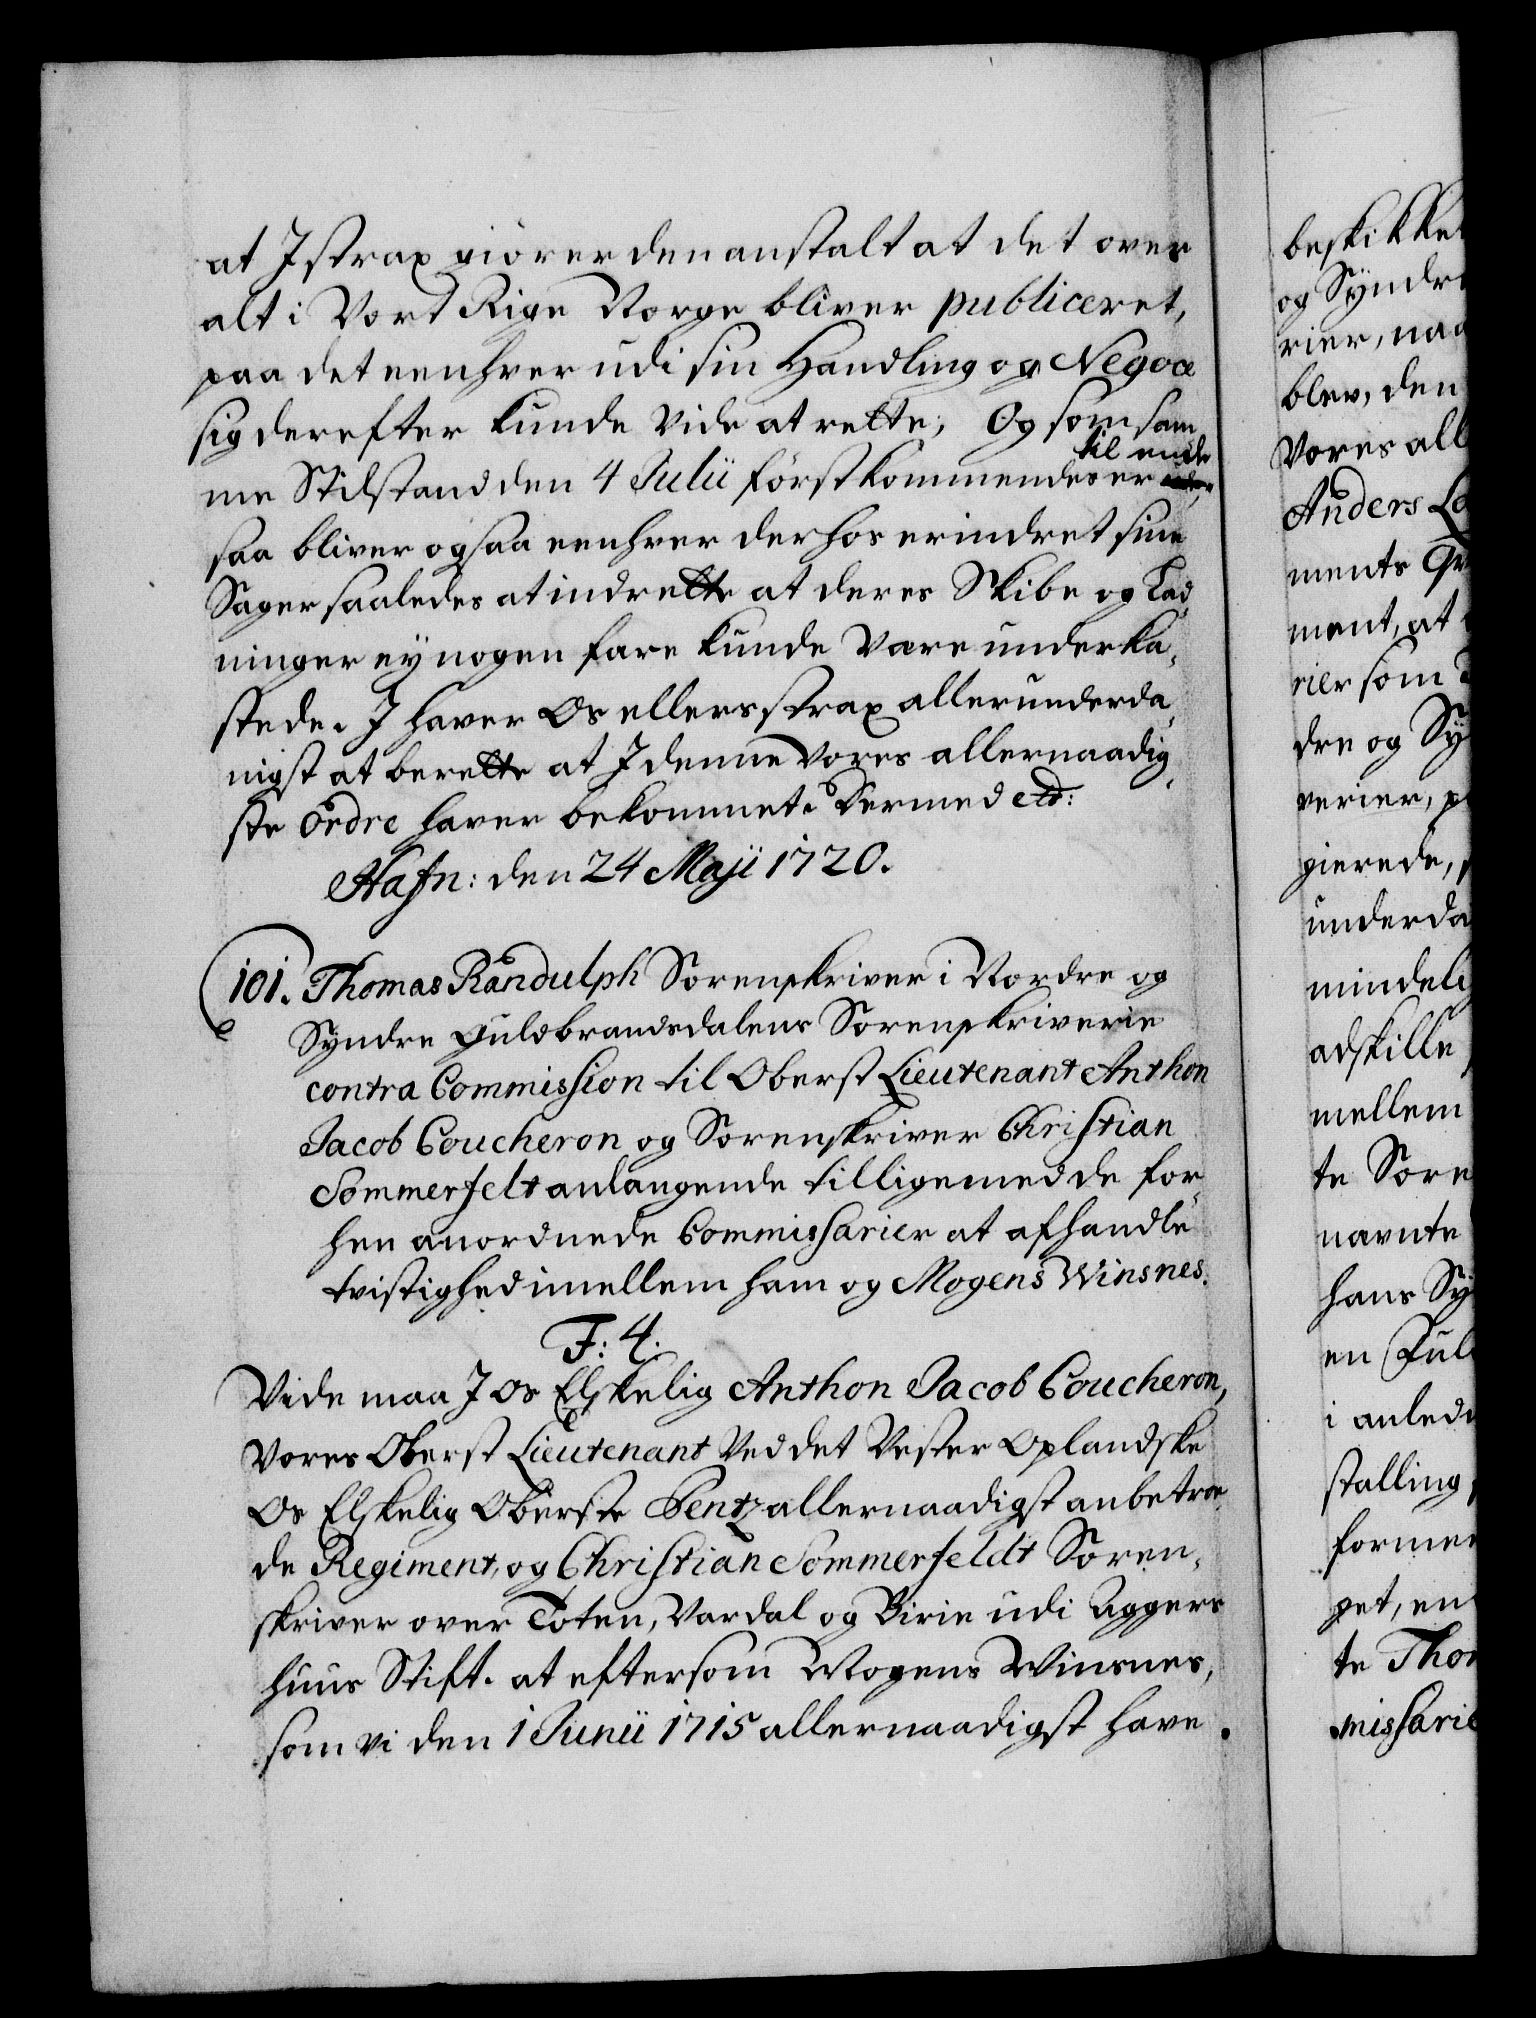 at I strax giörer den anstalt at det over
alt i Vort Rige Norge bliver publiceret,
paa det eenhver udi sin Handling og Negoce
sig derefter kunde vide at rette; Og som sam¬
me Stilstand den 4 Julii förstkommendes er til ende
saa bliver ogsaa eenhver derhos erindret sine
Sager saaledes at indrette at deres Skibe og Lad¬
ninger ey nogen fare kunde være underka¬
stede. I haver Os ellers strax allerunderda¬
nigst at berette at I denne Vores allernaadig¬
ste Ordre haver bekommet. Dermed etc:
Hafn: den 24 Maji 1720.
101. Thomas Randulph Sorenskriver i Nordre og
Syndre Guldbrandsdalens Sorenskriverie
contra Commission til Oberst Lieutenant Anthon
Jacob Coucheron og Sorenskriver Christian
Sommerfelt anlangende tilligemed de for¬
hen anordnede Commissarier at afhandle
tvistighed imellem ham og Mogens Winsnes.
F: 4.
Vide maa I Os Elskelig Anthon Jacob Coucheron,
Vores Oberst Lieutenant Ved det Vester Oplandske
Os Elskelig Oberste Pentz allernaadigst anbetroe¬
de Regiment, og Christian Sommerfeldt Soren¬
skriver over Toten, Vardal og Birie udi Agger¬
huus Stift. at eftersom Mogens Winsnes,
som vi den 1 Junii 1715 allernaadigst have
beskikket
og Syndre
rier, naa
blev, den
Vores all
Anders
ments
ment, at
rier som
dre og Sy
verier,
gierede,
underda
mindelig
adskille
mellem
te Sore
navnte
hans Sy
en Ful
i anled
stalling
formee
get, en
te Thom
missarie